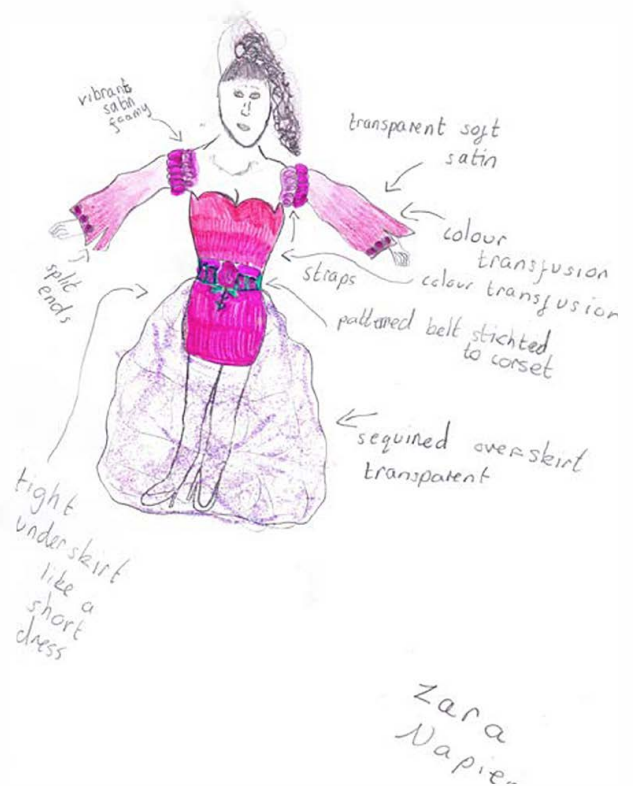 vibrant
satin
foamy
transparent soft
satin
colour
transfusion
colour transfusion
straps
split
ends
pattered belt stichted
to corset
sequined overskirt
transparent
tight
underskirt
like a
short
dress
Zara
Napier